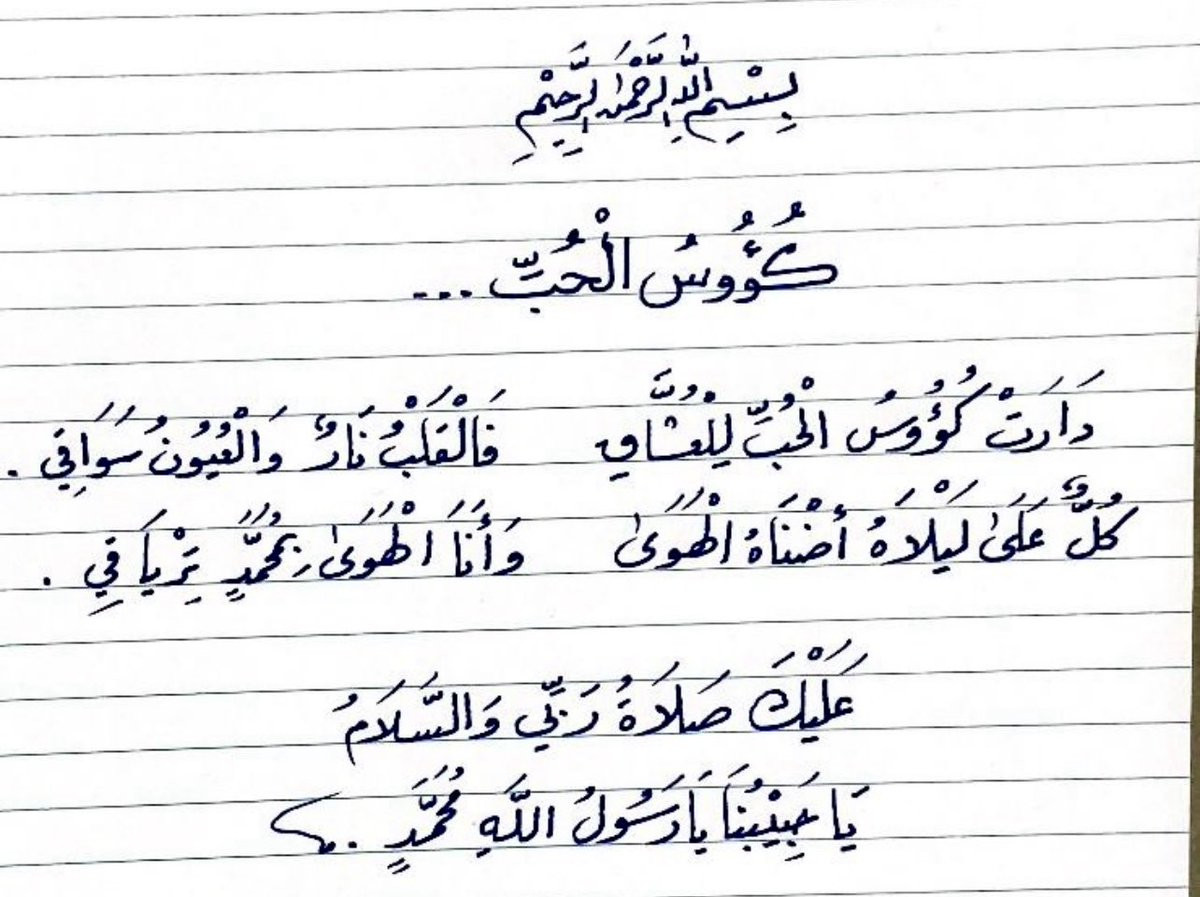 بِسْمِ اللَّهِ الرَّحْمٰنِ الرَّحِيْمِ
كُؤُوسُ الْحُبِّ ...
دَارَتْ كُؤُوسُ الْحُبِّ لِلْعُشَّاقِ فَالْقَلْبُ نَارٌ وَالْعُيُونُ سَوَاقِي .
كُلٌّ عَلَىٰ لَيْلَاهُ أَضْنَاهُ الْهَوَىٰ وَأَنَا الْهَوَىٰ بِمُحَمَّدٍ تِرْيَاقِي .
عَلَيْكَ صَلَاةُ رَبِّي وَالسَّلَامُ
يَا حَبِيْبُنَا يَا رَسُولُ اللَّهِ مُحَمَّدٍ .